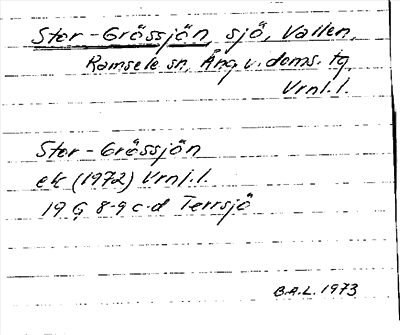 Stor-Grässjön, sjö, Vallen,
Ramsele sn, Ång v. doms. tg,
Vrnl. l.
Stor-Grässjön
ek (1972) Vrnl. l.
19 G 8-9 c-d Terrsjö
B.A.L. 1973